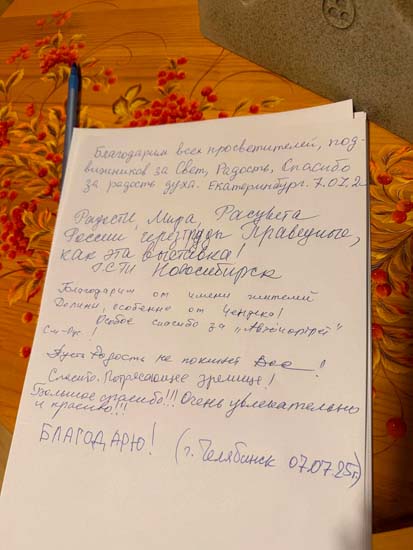 Благодарим всех просветителей, под-
вижников за Свет, Радость, Спасибо
за радость духа. Екатеринбург. 7.07.2
Радости, Мира, Расцвета
России через труды Праведного,
как эта выставка!
Гости Новосибирск
Благодарим от имени жителей
Долины, особенно от
Особое спасибо за
!
Пусть Радость не покинет !
Спасибо. Потрясающее зрелище!
Большое спасибо!!! Очень увлекательно
и красиво!!!
БЛАГОДАРЮ! (г. Челябинск 07.07.25г.)